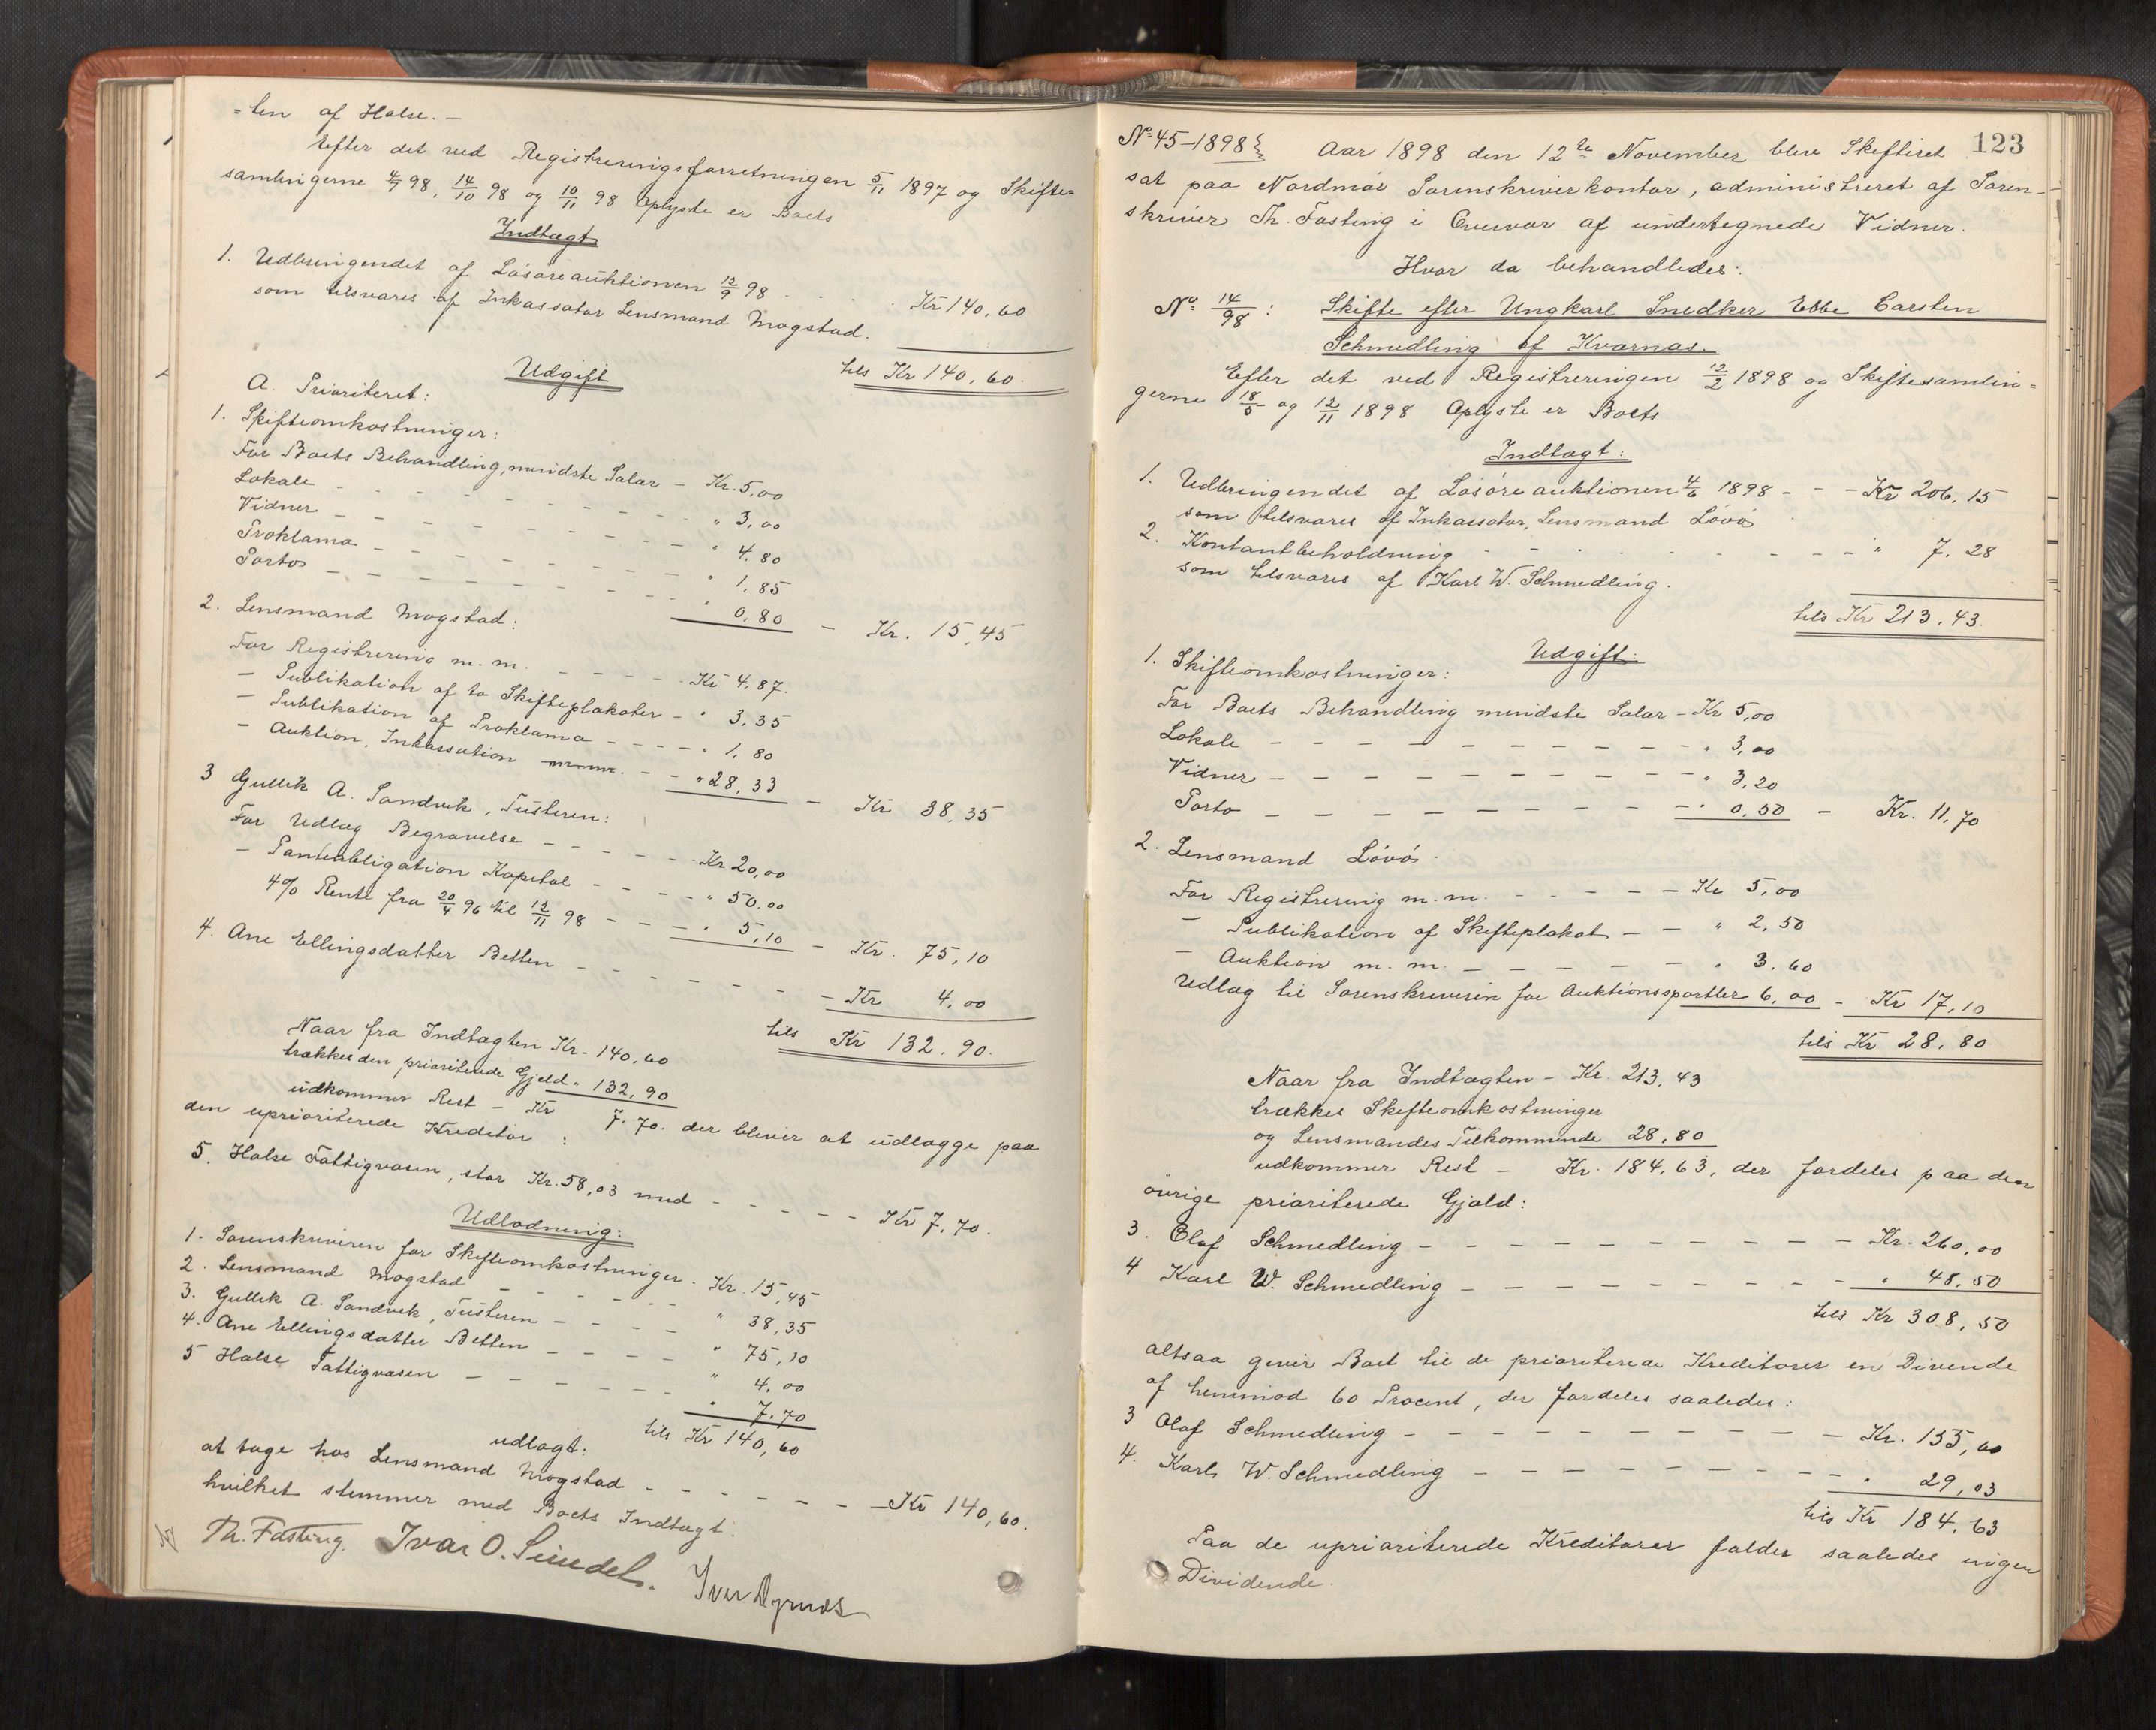 =ten af Halse. –
Efter det ved Registreringsforretningen 5/11 1897 og Skifte=
samlingerne 4/7 98, 14/10 98 og 10/11 98 Oplyste er Boets
Indtægt
1. Udbringendet af Løsøreauktionen 12/9 98 . . . . Kr 140,60
som tilsvares af Inkassator Lensmand Mogstad.
tils Kr 140,60.
Udgift
A. Prioriteret:
1. Skifteomkostninger:
For Boets Behandling, mindste Salær – Kr. 5,00
Lokale – – – – – – " 3,00
Vidner – – – – – – " 4,80
Proklama – – – – – – " 1,85
Porto – – – – – – " 0,80 – Kr. 15,45
2. Lensmand Mogstad:
For Registrering m. m. – – – – – Kr 4,87.
– Publikation af to Skifteplakater – " 3,35
– Publikation af Proklama – – – – " 1,80
– Auktion, Inkassation – – " 28,33 – Kr 38,35
3 Gullik A. Sandvik, Tusteren:
For Udlæg Begravelse – – – – – Kr 20,00
– Panteobligation Kapital – – – – " 50,00
4% Rente fra 20/4 96 til 12/11 98 – – – " 5,10 – Kr. 75,10
4. Ane Ellingsdatter Betten – – – – – – – Kr 4,00
tils Kr 132,90.
Naar fra Indtægten Kr. 140,60
trækkes den prioriterede Gjeld " 132,90
udkommer Rest – Kr 7,70. der bliver at udlægge paa
den uprioriterede Kreditor:
5. Halse Fattigvæsen, stor Kr. 58,03 med – – – – – Kr 7,70.
Udlodning:
1. Sorenskriveren for Skifteomkostninger. Kr. 15,45
2. Lensmand Mogstad – – – – – – " 38,35
3. Gullik A. Sandvik, Tusteren – – – – " 75,10
4. Ane Ellingsdatter Betten – – – – " 4,00
5 Halse Fattigvæsen – – – – – – " 7,70
tils Kr 140,60
udlagt:
at tage hos Lensmand Mogstad – – – – – – – Kr 140,60.
hvilket stemmer med Boets Indtægt.
Th. Fasting. Ivar O. Sundet.
Iver Dyrnæs
No 45–1898 Aar 1898 den 12te November blev Skifteret 123
sat paa Nordmør Sorenskriverkontor, administreret af Soren–
skriver Th. Fasting i Overvær af undertegnede Vidner.
Hvor da behandledes:
No 14/98: Skifte efter Ungkarl Snedker Ebbe Carsten
Schmedling af Kvernæs.
Efter det ved Registreringen 12/2 1898 og Skiftesamlin=
gerne 18/5 og 12/11 1898 Oplyste er Boets
Indtægt:
1. Udbringendet af Løsøreauktionen 4/6 1898 – – – Kr 206,15
som tilsvares af Inkassator, Lensmand Løvø
2. Kontantbeholdning – – – – – – – – " 7.28
som tilsvares af Karl W. Schmedling.
tils Kr 213,43.
Udgift:
1. Skifteomkostninger:
For Boets Behandling mindste Salær – Kr 5,00
Lokale – – – – – – – – – – " 3,00
Vidner – – – – – – – – – – " 3,20
Porto – – – – – – – – – – " 0,50 – Kr. 11,70
2. Lensmand Løvø.
For Registrering m. m. – – – – – Kr 5,00
– Publikation af Skifteplakat – – " 2,50
– Auktion m. m. – – – – – – " 3,60
Udlæg til Sorenskriveren for Auktionssportler 6,00 – Kr 17,10
tils Kr 28,80
Naar fra Indtægten – Kr. 213,43
trækkes Skifteomkostninger
og Lensmandes Tilkommende 28,80
udkommer Rest – Kr. 184,63, der fordeles paa den
øvrige prioriterede Gjæld:
3. Olaf Schmedling – – – – – – – – – – Kr. 260,00
4 Karl W. Schmedling – – – – – – – – – " 48,50
tils Kr 308,50
altsaa giver Boet til de prioriterede Kreditorer en Divende
af henimod 60 Procent, der fordeles saaledes:
3 Olaf Schmedling – – – – – – – – – – Kr. 155,60
4. Karl W. Schmedling – – – – – – – – – " 29,03
tils Kr 184,63
Paa de uprioriterede Kreditorer falder saaledes ingen
Dividende.